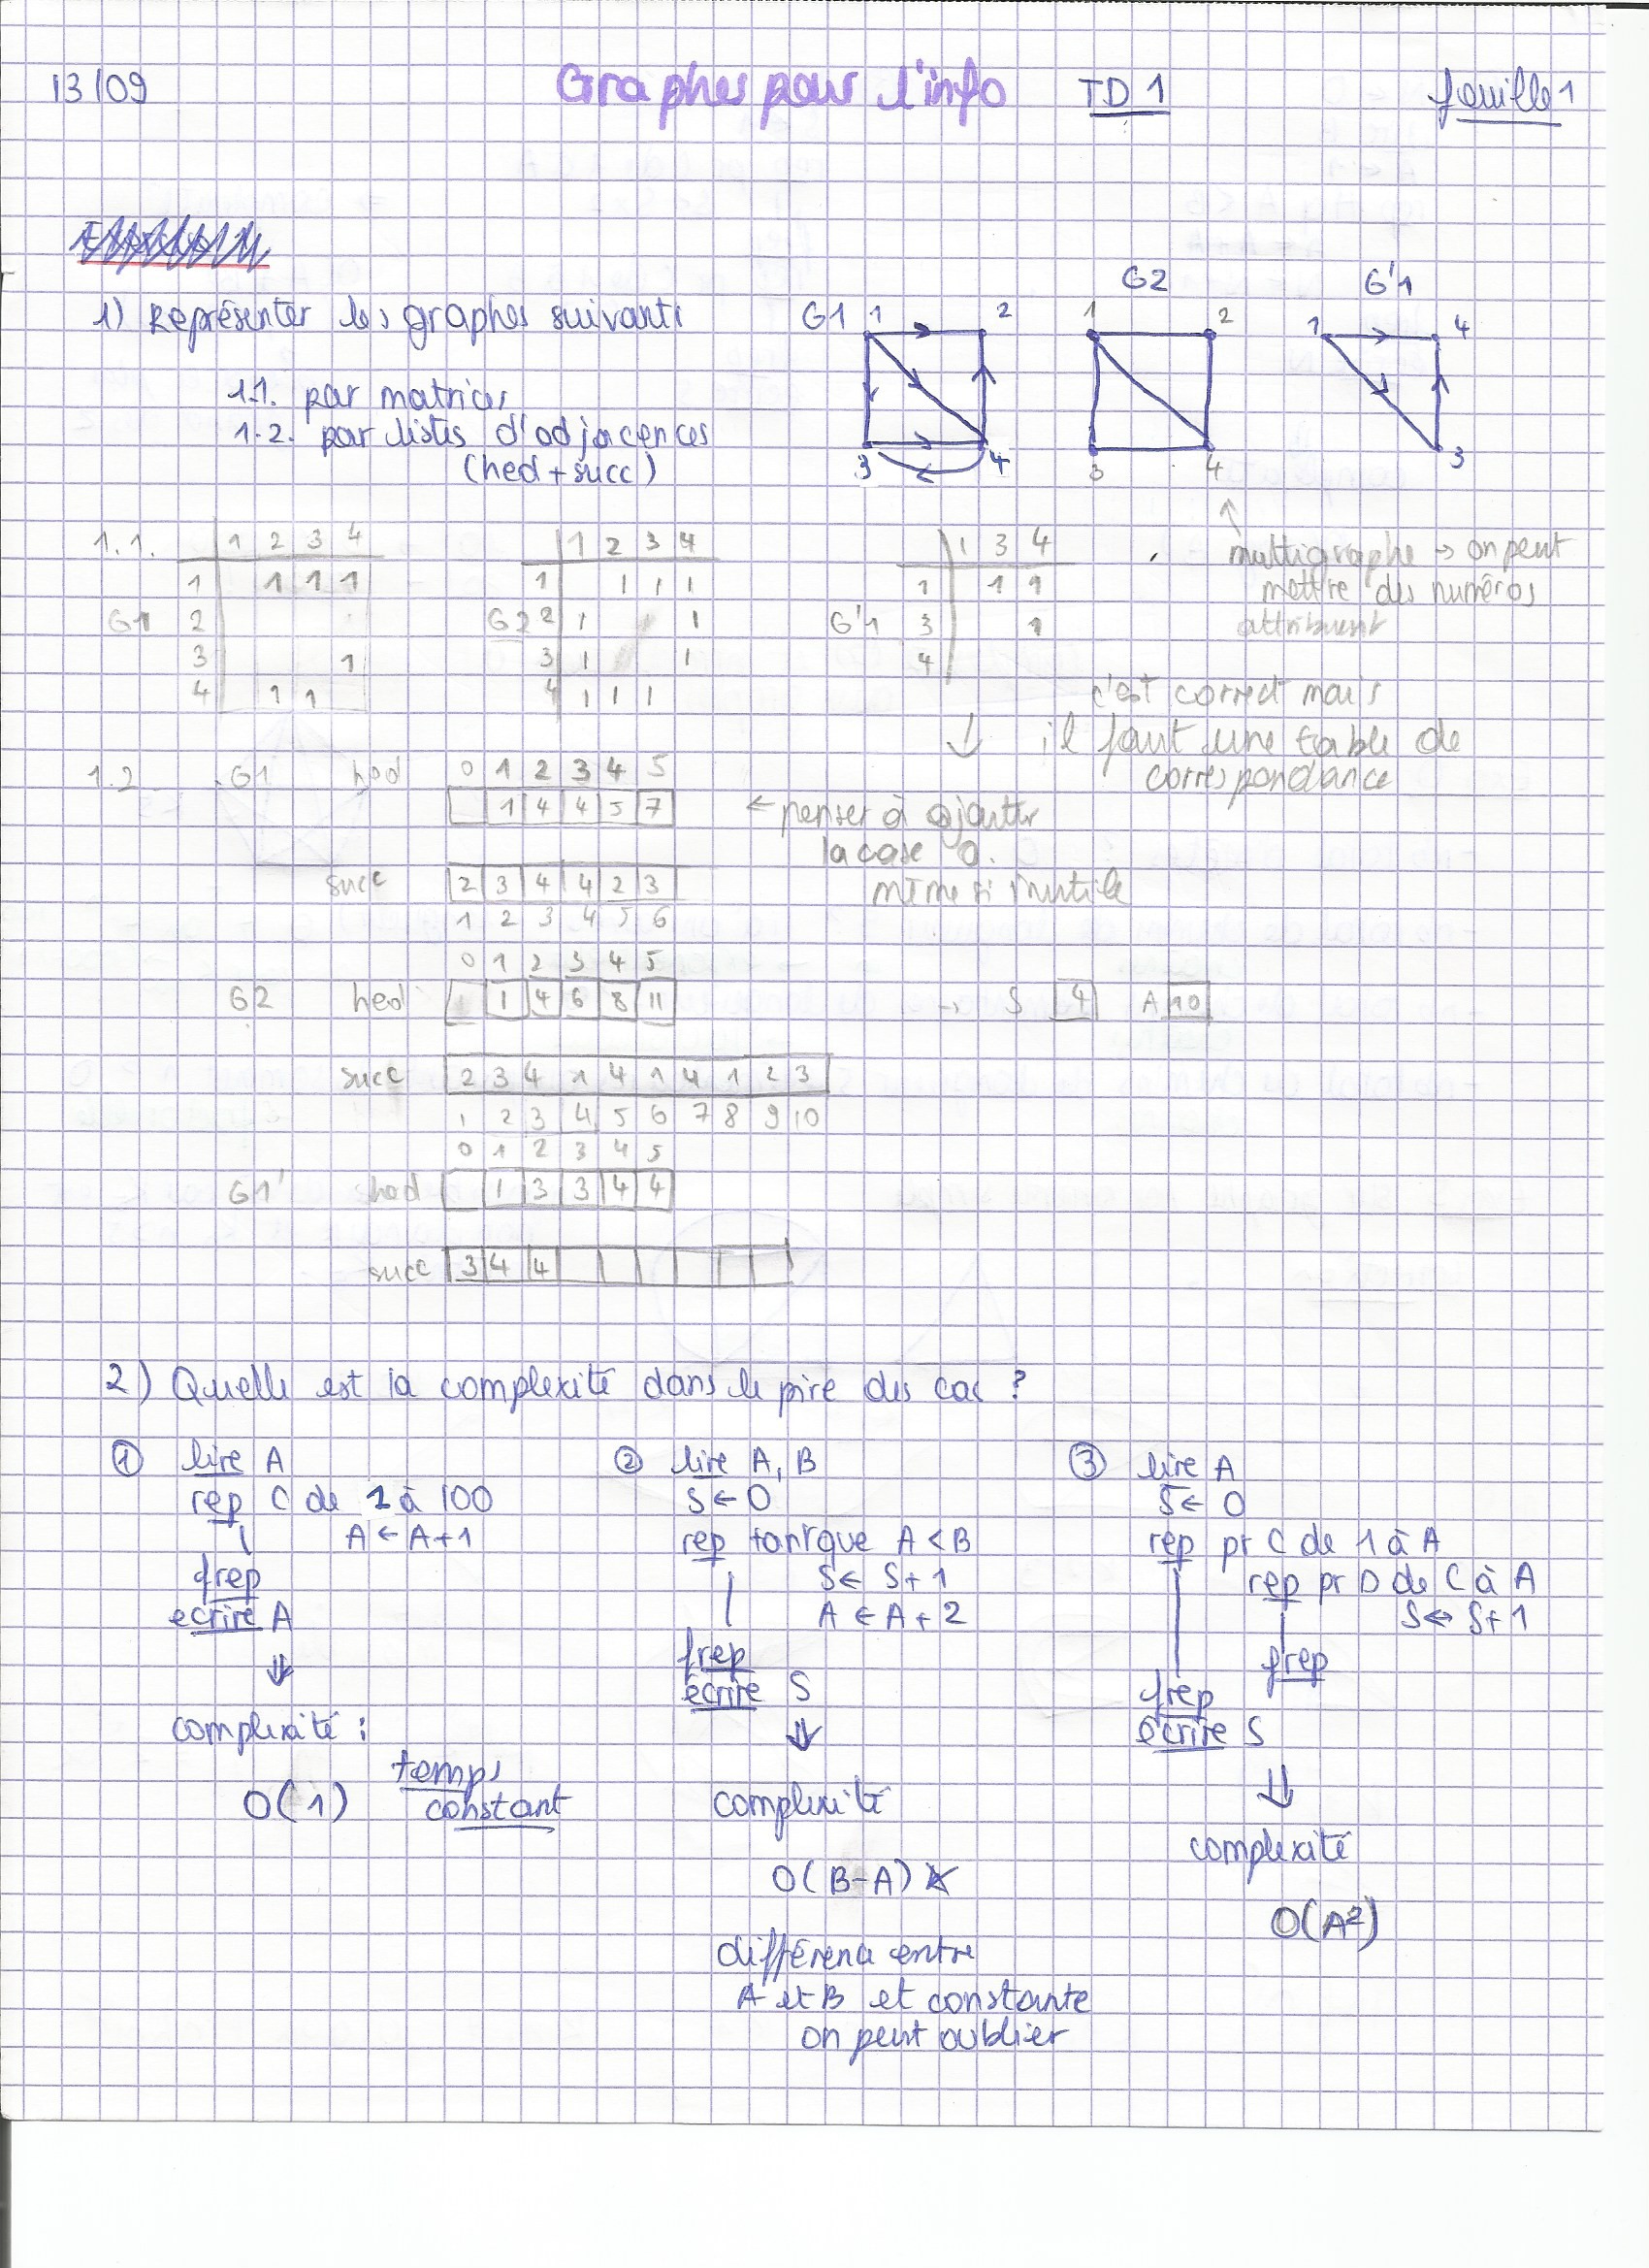 13/09 Graphes pour l'info TD 1 feuille 1
1) Représenter les graphes suivants
1.1. par matrices
1.2. par listes d'adjacences
(hed + succ)
G1 1 2 3 4
G2 1 2 3 4
G'1 1 4 3
multigraphe → on peut
mettre des numéros
attribuent
1.1.
G1
1 2 3 4
1 1 1 1
2
3 1
4 1 1
G2
1 2 3 4
1 1 1 1
2 1 1
3 1 1
4 1 1 1
G'1
1 3 4
1 1 1
3 1
4
c'est correct mais
↓ il faut une table de
correspondance
1.2 G1 hed
0 1 2 3 4 5
1 4 4 5 7
← penser à ajouter
la case 0.
même si inutile
succ 2 3 4 4 2 3
1 2 3 4 5 6
0 1 2 3 4 5
G2 hed 1 4 6 8 11 → S 4 A 10
succ 2 3 4 1 4 1 4 1 2 3
1 2 3 4 5 6 7 8 9 10
0 1 2 3 4 5
G1' hed 1 3 3 4 4
succ 3 4 4
2) Quelle est la complexité dans le pire des cas ?
① lire A
rep C de 1 à 100
A ← A + 1
frep
ecrire A
⇓
complexité :
O(1) temps
constant
② lire A, B
S ← O
rep tantque A < B
S ← S + 1
A ← A + 2
frep
écrire S
⇓
complexité
O(B-A)
différence entre
A et B et constante
on peut oublier
③ lire A
S ← O
rep pr C de 1 à A
rep pr D de C à A
S ← S + 1
frep
frep
écrire S
⇓
complexité
O(A²)